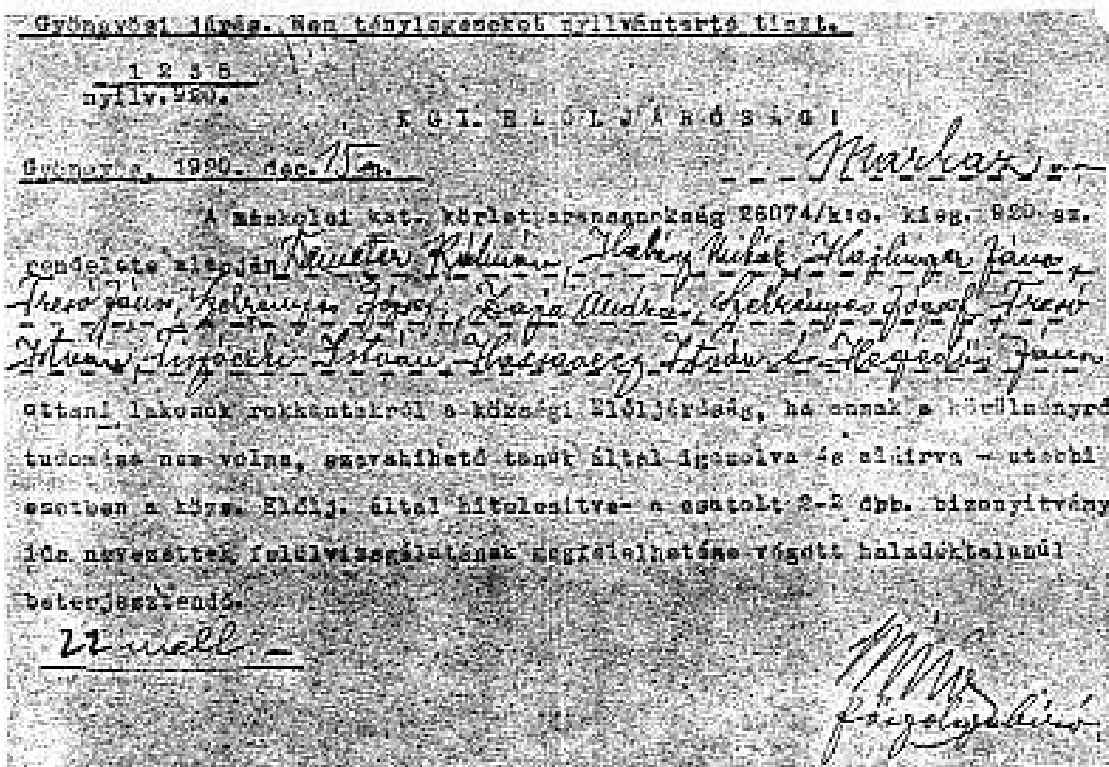 Gyöngyösi járás. Nem ténylegeseket nyilvántartó tiszt.
1 2 3 8
nyilv. 920.
KGI. ELŐLJÁRÓSÁG!
Gyöngyös, 1920. dec. 15-n. Markaz
A miskolci kat. körletparancsnokság 26074/k:o. kieg. 920 sz.
rendelete alapján Demeter Kálmán, Mihály, Hajlinger János,
János, Zebrényes József, Zaja András, Zebrényes József,
István, István, István és Hegedűs János
ottani lakosok rokkantakról a községi Előljáróság, ha annak a
tudomása nem volna, szavahihető tanúk által igazolva és aláirva - utóbbi
esetben a közs. Előlj. által hitelesitve- a csatolt 2-2 dpb. bizonyitvány
ide nevezettek felülvizsgálatának megfejelhetése végett haladéktalanúl
beterjesztendő.
22 mell. -
főszolgabíró